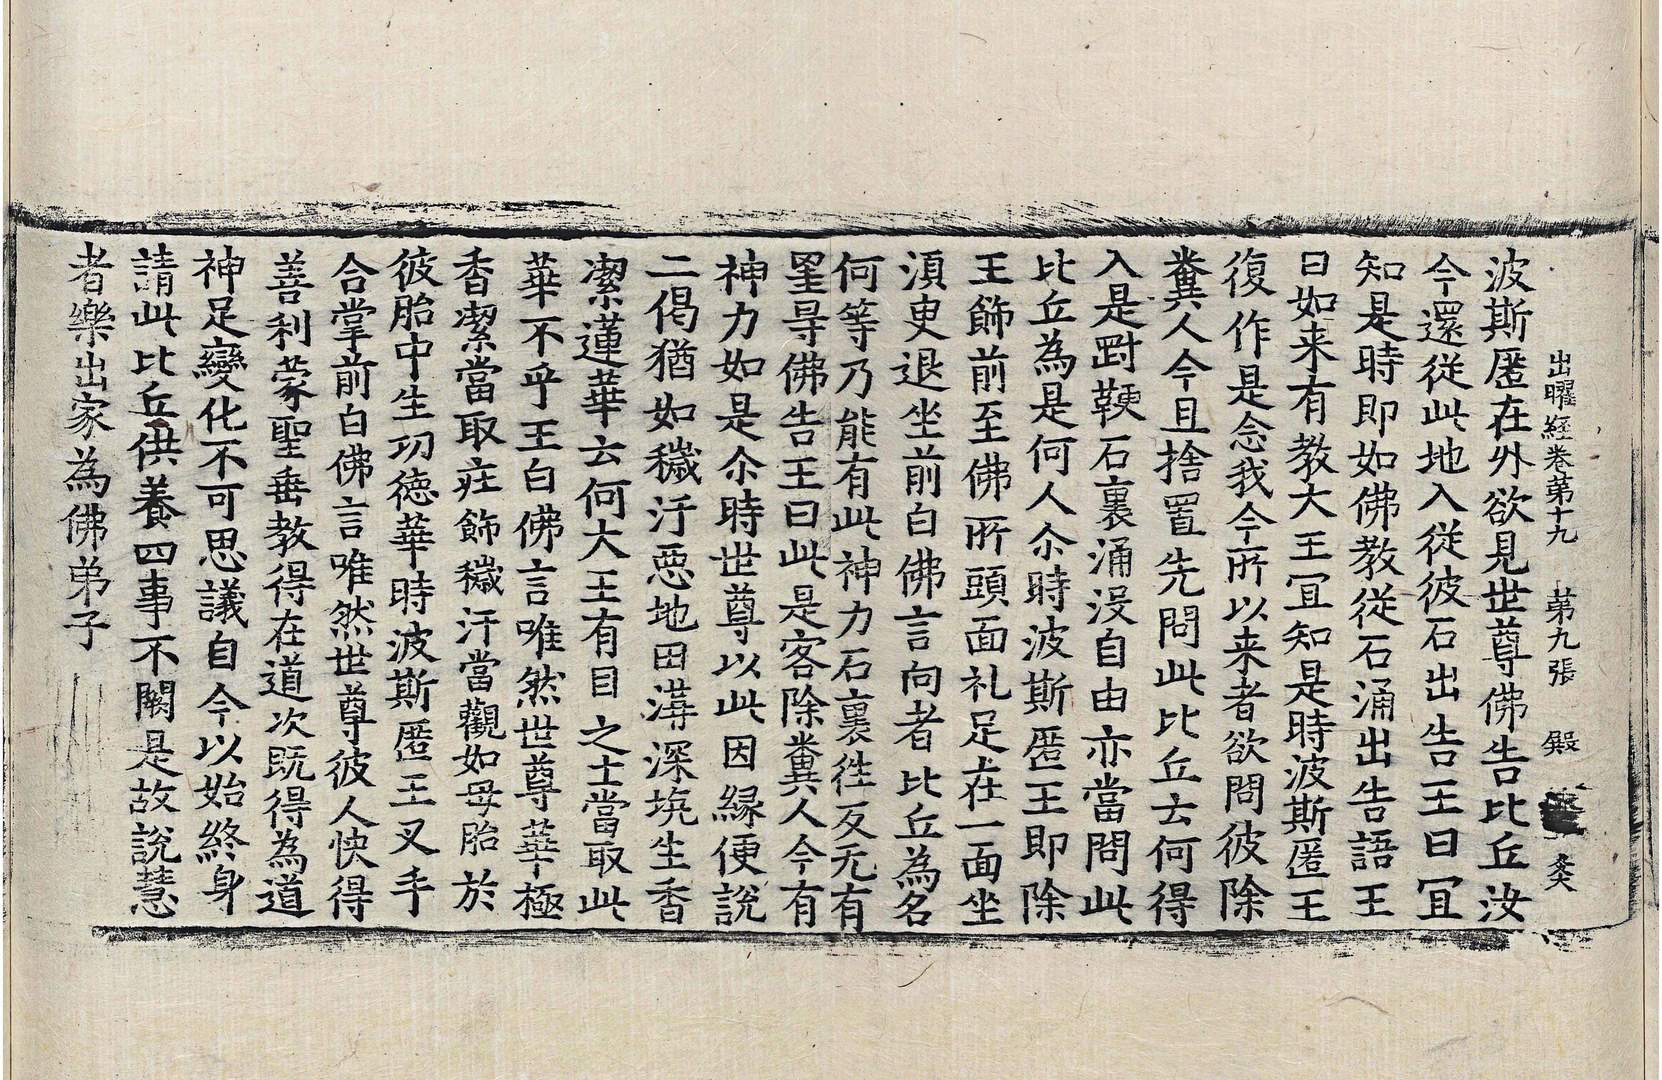 出曜経巻第十九 第九張 殿
波斯匿在外欲見世尊佛告比丘汝
今還從此地入從彼石出告王曰冝
知是時即如佛教從石涌出告語王
曰如来有教大王冝知是時波斯匿王
復作是念我今所以来者欲問彼除
糞人今且捨置先問此比丘去何得
入是對鞕石裏涌没自由亦當問此
比丘為是何人尒時波斯匿王即除
王飾前至佛所頭面礼足在一面坐
湏臾退坐前白佛言向者比丘為名
何等乃能有此神力石裏徃反无有
罣㝵佛告王曰此是客除糞人今有
神力如是尒時世尊以此因縁便說
二偈猶如穢汙悪地田溝深坑生香
潔蓮華云何大王有目之士當取此
華不乎王白佛言唯然世尊華極
香潔當取荘飾穢汙當觀如母胎於
彼胎中生功徳華時波斯匿王叉手
合掌前白佛言唯然世尊彼人快得
善利蒙聖垂教得在道次既得為道
神足變化不可思議自今以始終身
請此比丘供養四事不闕是故說慧
者樂出家為佛弟子